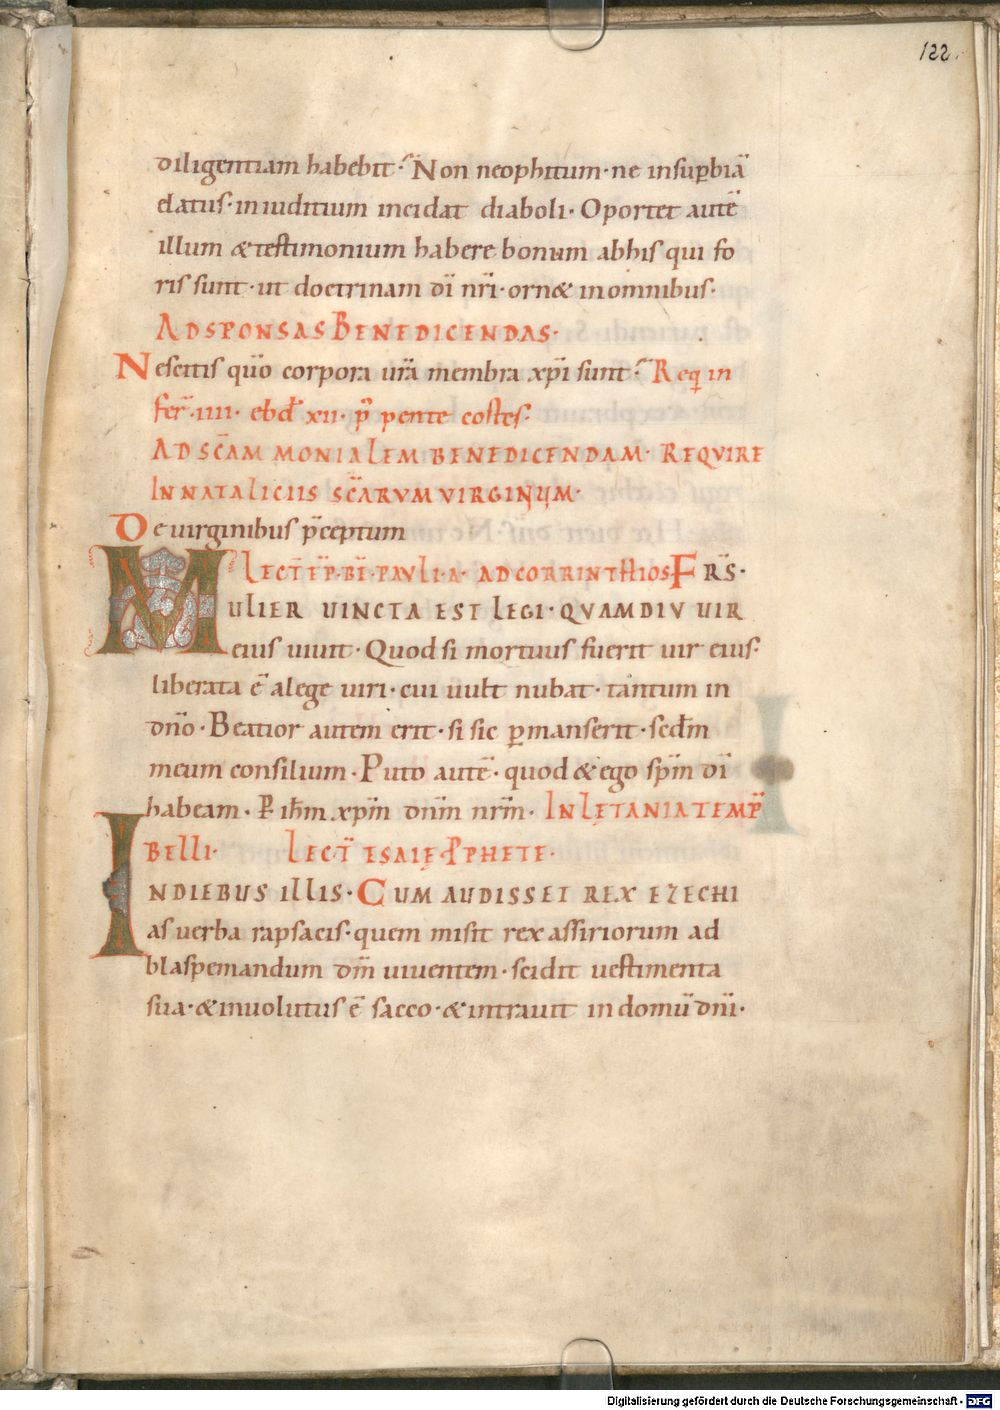 122.
diligentiam habebit· Non neophitum· ne insuꝑbiā
elatus· in iuditium incidat diaboli· Oportet autē
illum & testimonium habere bonum abhis qui fo
ris sunt· ut doctrinam dī nr̄i· orn& inomnibus·
AD SPONSAS BENEDICENDAS·
Nescitis quō corpora ur̄a membra xp̄i sunt· Req̄ in
fer̄· iiii· ebd̄ xii· p̄ pente costes·
AD SC̄AM MONIALEM BENEDICENDAM· REQVIRE
IN NATALICIIS SC̄ARVM VIRGINUM·
De uirginibus p̄ceptum
LECT̄ EP̄· BĪ· PAVLI· A· AD CORRINTHIOS FR̄S·
MULIER UINCTA EST LEGI· QVAMDIV UIR
eius uiuit· Quod si mortuus fuerit uir eius·
liberata ē alege uiri· cui uult nubat· tantum in
dn̄o· Beatior autem erit· si sic ꝑmanserit· sedm̄
meum consilium· Puto autē· quod & ego sp̄m dī
habeam· P̄ ih̄m xp̄m dn̄m nr̄m· IN LETANIA TEMP̄
BELLI· LECT̄ ESAIĘ PPHETE·
INDIEBUS ILLIS· CUM AUDISSET REX EZECHI
as uerba rapsacis· quem misit rex assiriorum ad
blaspemandum dm̄ uiuentem· scidit uestimenta
sua· & inuolutus ē sacco· & intrauit in domū dn̄i·
Digitalisierung gefördert durch die Deutsche Forschungsgemeinschaft - DFG